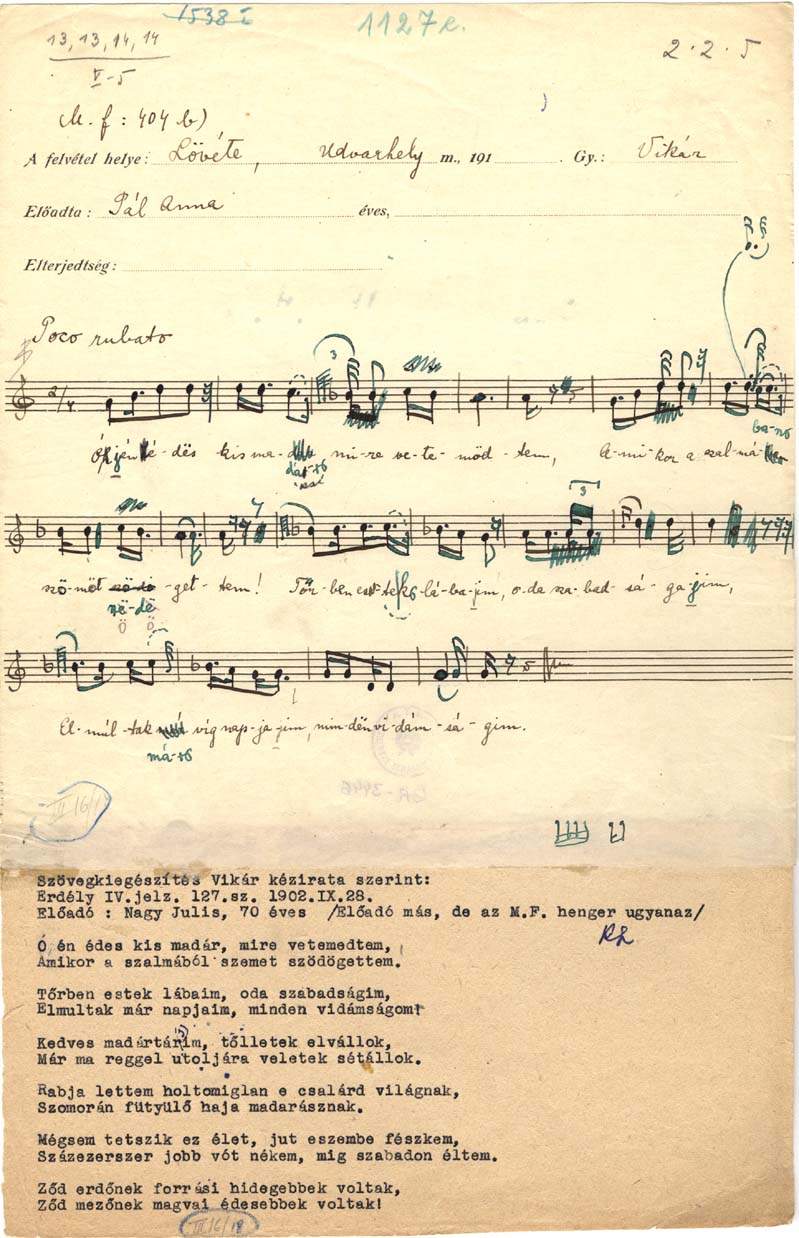 1538 I
1127e.
13, 13, 14, 14
V-5
2·2·5
M. f: 404 b)
A felvétel helye: Lövéte, Udvarhely m., 191 Gy.: Vikár
Előadta: Pál Anna éves,
Elterjedtség:
Poco rubato
3
2/4
ba-ró
jén-é-dës kis ma- mi-re ve-te-möd-tem, A-mi-kor a szal-má
dár-ró
3
szö-möt -get-tem! Tőr-ben es-tek lá-ba-jim, o-da sza-bad-sá-ga-jim,
në-dë
ö ö
El-múl-tak víg nap-ja-jim, min-dën vi-dám-sá-gim.
má-ró
BR-3446
III 16/18
Szövegkiegészités Vikár kézirata szerint:
Erdély IV.jelz. 127.sz. 1902.IX.28.
Előadó : Nagy Julis, 70 éves /Előadó más, de az M.F. henger ugyanaz/
Ó én édes kis madár, mire vetemedtem,
Amikor a szalmából szemet szödögettem.
Tőrben estek lábaim, oda szabadságim,
Elmultak már napjaim, minden vidámságom!
Kedves madártárim, tőlletek elvállok,
Már ma reggel utoljára veletek sétállok.
Rabja lettem holtomiglan e csalárd világnak,
Szomorán fütyülő haja madarásznak.
Mégsem tetszik ez élet, jut eszembe fészkem,
Százezerszer jobb vót nékem, mig szabadon éltem.
Ződ erdőnek forrási hidegebbek voltak,
Ződ mezőnek magvai édesebbek voltak!
III/6/18